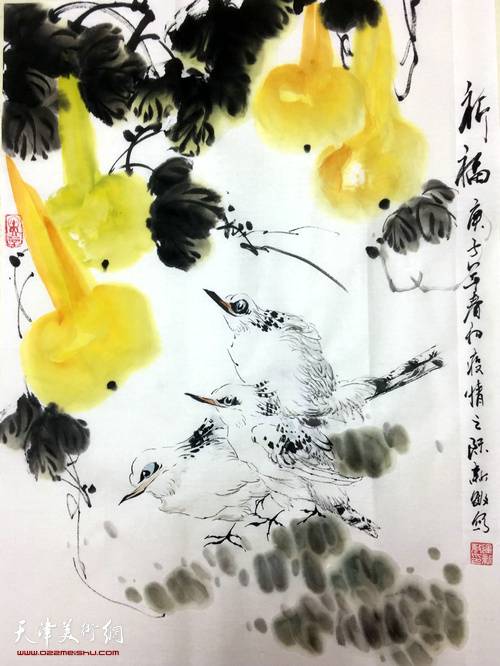 祈福
庚子年春初疫情之际新敏写
天津美術網
www.022meishu.com